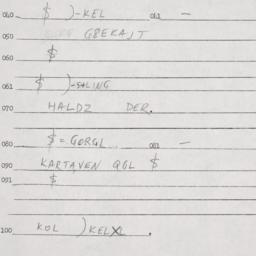 040 $ )-KEL 042 —
050 GBEKAJT
060 $
061 $ )-SALING
070 HALDZ DER.
080 $ = GORGL 081 —
090 KARTAVEN QGL $
091 $
100 KOL )KELXL .